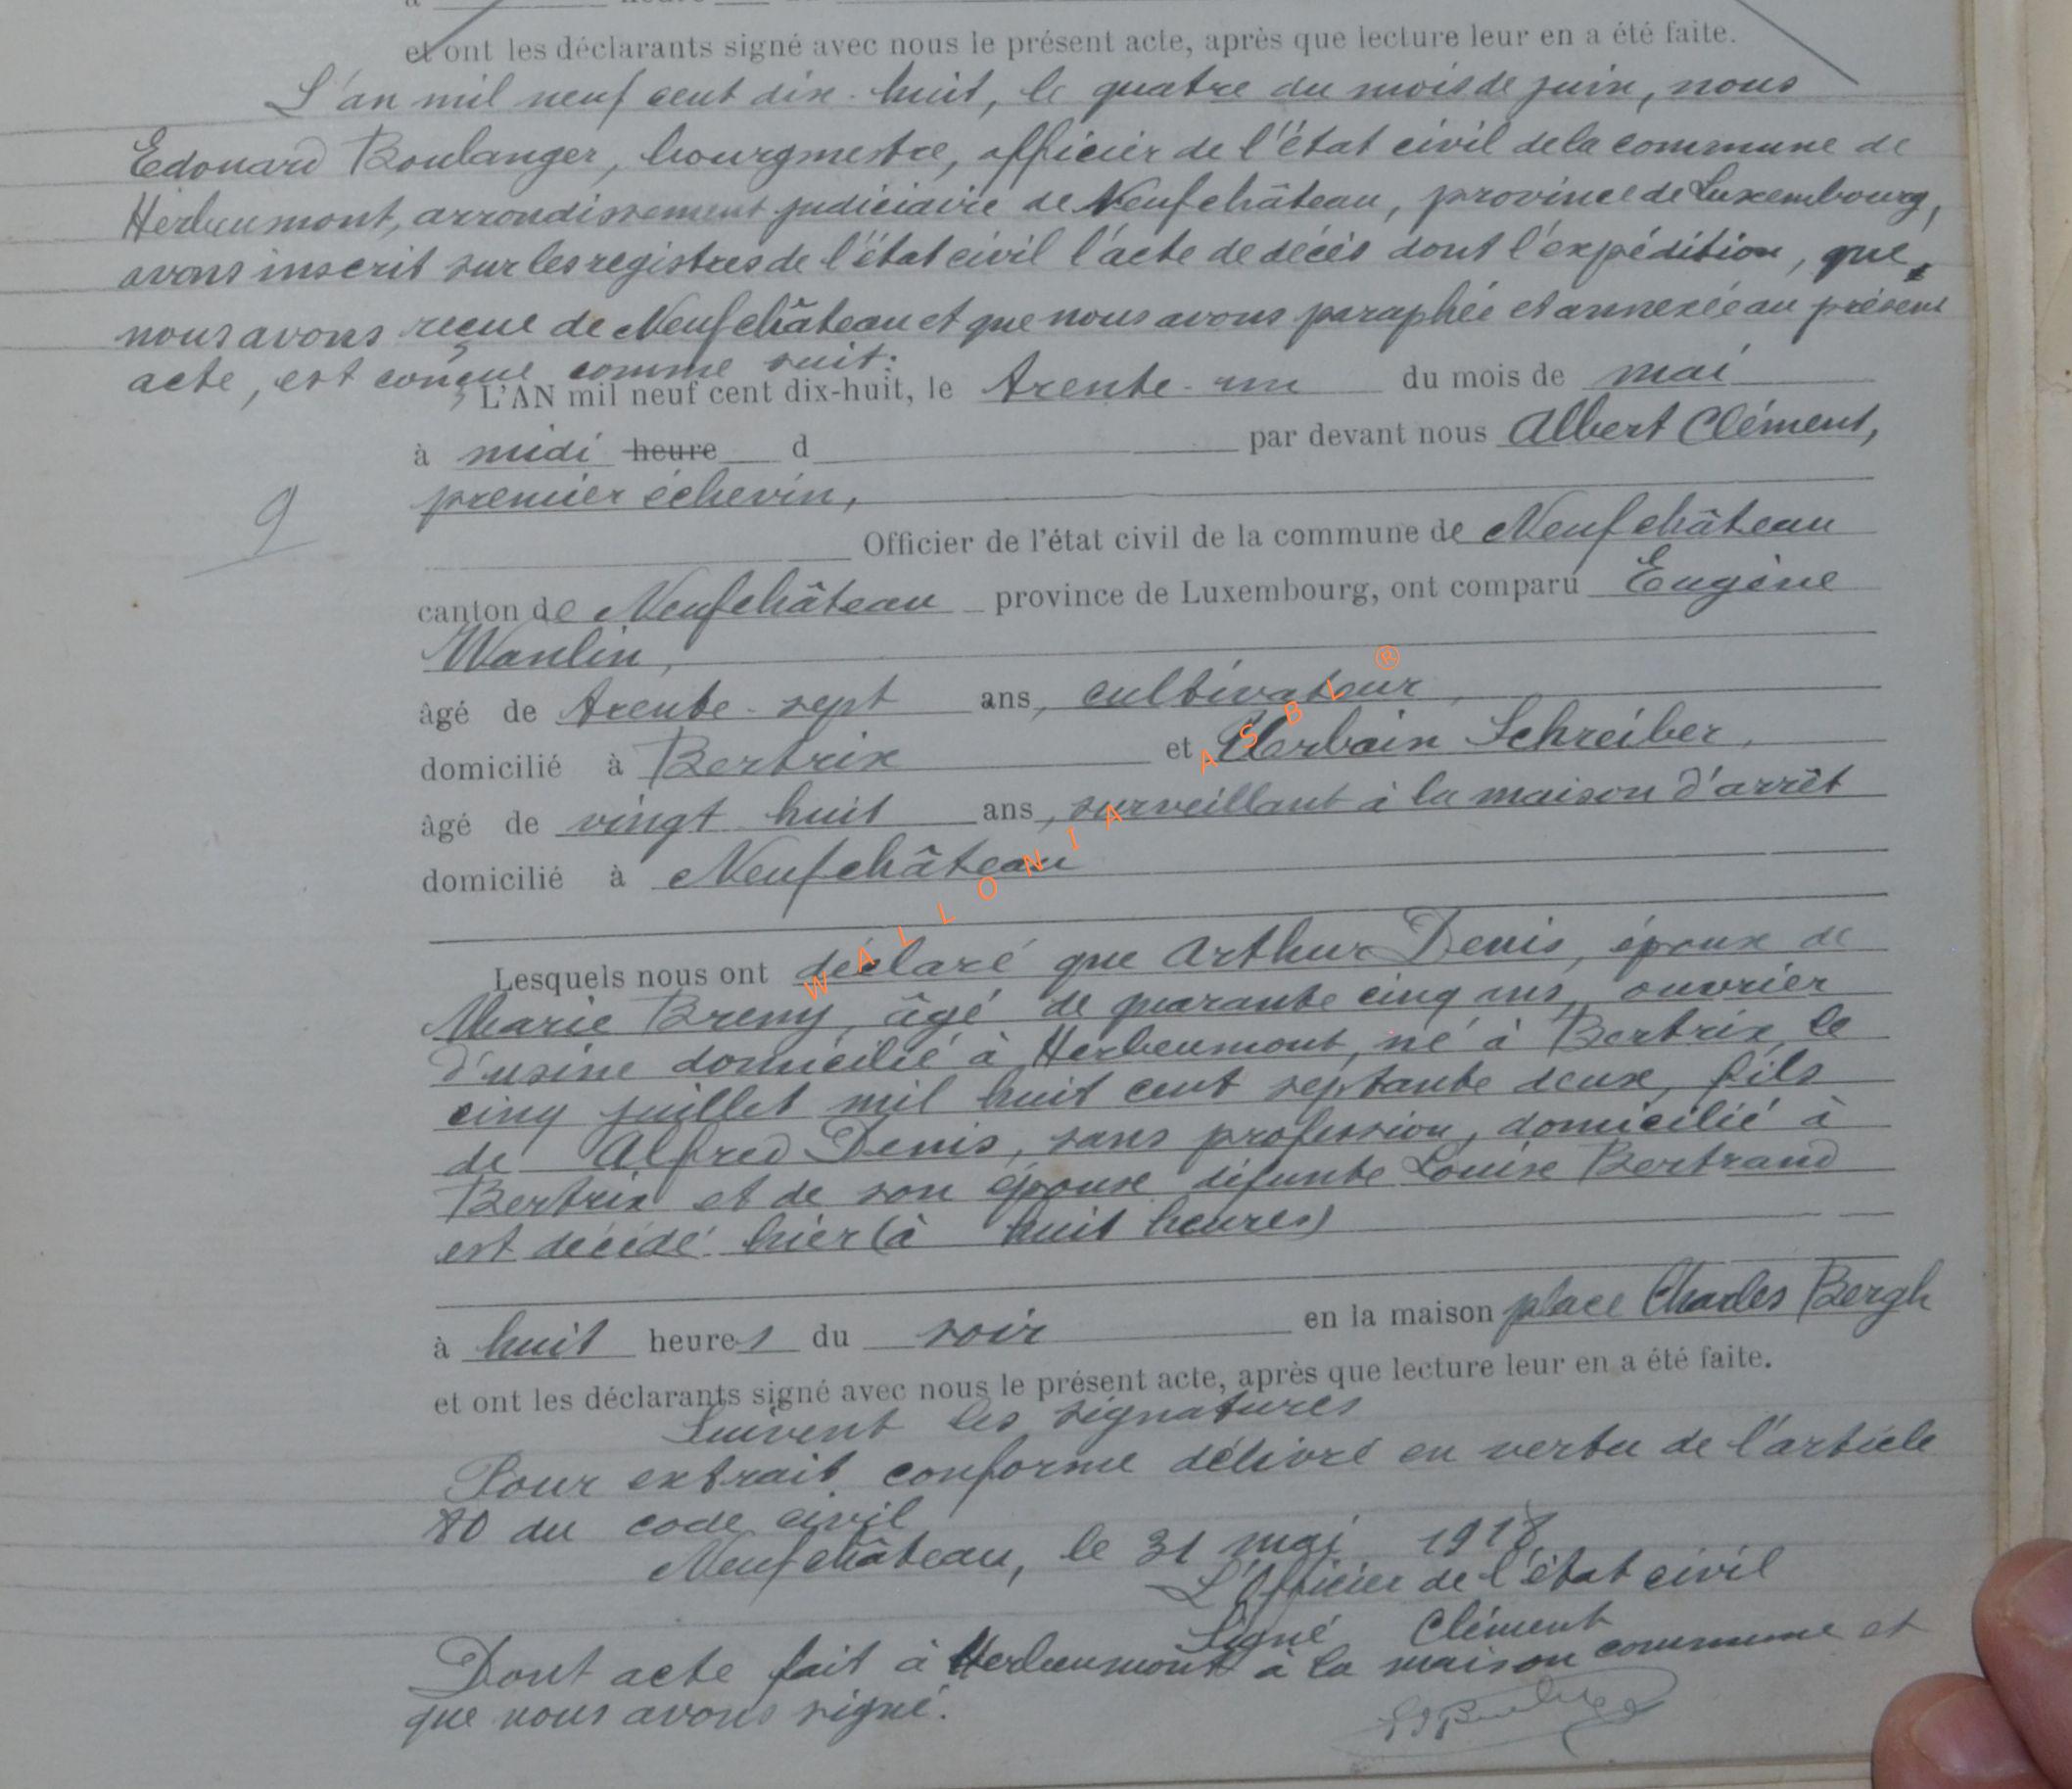 et ont les déclarants signé avec nous le présent acte, après que lecture leur en a été faite.
L'an mil neuf cent dix-huit, le quatre du mois de juin, nous
Edouard Boulanger, bourgmestre, officier de l'état civil de la commune de
Herbeumont, arrondissement judiciaire de Neufchâteau, province de Luxembourg,
avons inscrit sur les registres de l'état civil l'acte de décès dont l'expédition, que
nous avons reçue de Neufchâteau et que nous avons paraphée et annexée au présent
acte, est conçue comme suit:
L'AN mil neuf cent dix-huit, le trente-un du mois de mai
à midi heure d par devant nous Albert Clément,
premier échevin,
9
Officier de l'état civil de la commune de Neufchâteau
canton de Neufchâteau province de Luxembourg, ont comparu Eugène
Wanlin,
âgé de trente-sept ans, cultivateur,
domicilié à Bertrix et Urbain Schreiber,
âgé de vingt huit ans, surveillant à la maison d'arrêt
domicilié à Neufchâteau
Lesquels nous ont déclaré que Arthur Denis, époux de
Marie Breny, âgé de quarante cinq ans, ouvrier
d'usine domicilié à Herbeumont, né à Bertrix, le
cinq juillet mil huit cent septante deux, fils
de Alfred Denis, sans profession, domicilié à
Bertrix et de son épouse défunte Louise Bertrand
est décédé hier (à huit heures)
à huit heures du soir en la maison place Charles Bergh
et ont les déclarants signé avec nous le présent acte, après que lecture leur en a été faite.
Suivent les signatures
Pour extrait conforme délivré en vertu de l'article
80 du code civil
Neufchâteau, le 31 mai 1918
L'Officier de l'état civil
Signé Clément
Dont acte fait à Herbeumont à la maison commune et
que nous avons signé.
WALLONIA ASBL ®